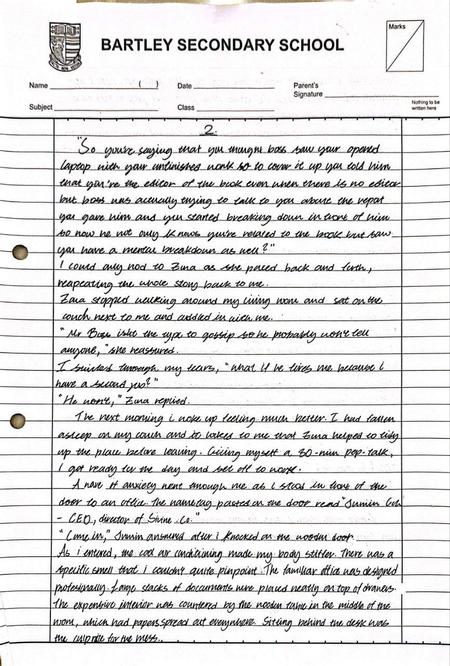 BARTLEY SECONDARY SCHOOL
Marks
Name ( ) Date Parent's
Signature
Nothing to be
written here
Subject Class
2.
"So you're saying that you thought boss saw your opened
laptop with your unfinished work so to cover it up you told him
that you're the editor of the book even when there is no editor
but boss was actually trying to talk to you about the report
you gave him and you started breaking down in front of him
so now he not only knows you're related to the book but saw
you have a mental breakdown as well?"
I could only nod to Zina as she paced back and forth,
reapeating the whole story back to me.
Zara stopped walking around my living room and sat on the
couch next to me and cuddled in with me.
"Mr Boss isn't the type to gossip so he probably won't tell
anyone," she reassured.
I through my tears, "what if he fires me because i
have a second job?"
"He won't," Zina replied.
The next morning i woke up feeling much better. I had fallen
asleep on my couch and it looked to me that Zina helped to tidy
up the place before leaving. Giving myself a 30-min pep-talk,
I got ready for the day and set off to work.
A wave of anxiety went through me as i stood in front of the
door to an office. The nametag pasted on the door read "Jumin
- CEO, director of Shine .co."
"Come in," Jumin answered after i knocked on the wooden door.
As i entered, the cool air conditioning made my body stiffen. There was a
specific smell that i couldnt quite pinpoint. The familiar office was designed
profesionally. Large stacks of documents were placed neatly on top of drawers.
The expensive interior was countered by the wooden table in the middle of the
room, which had papers spread out everywhere. Sitting behind the desk was
the culprate for the mess.